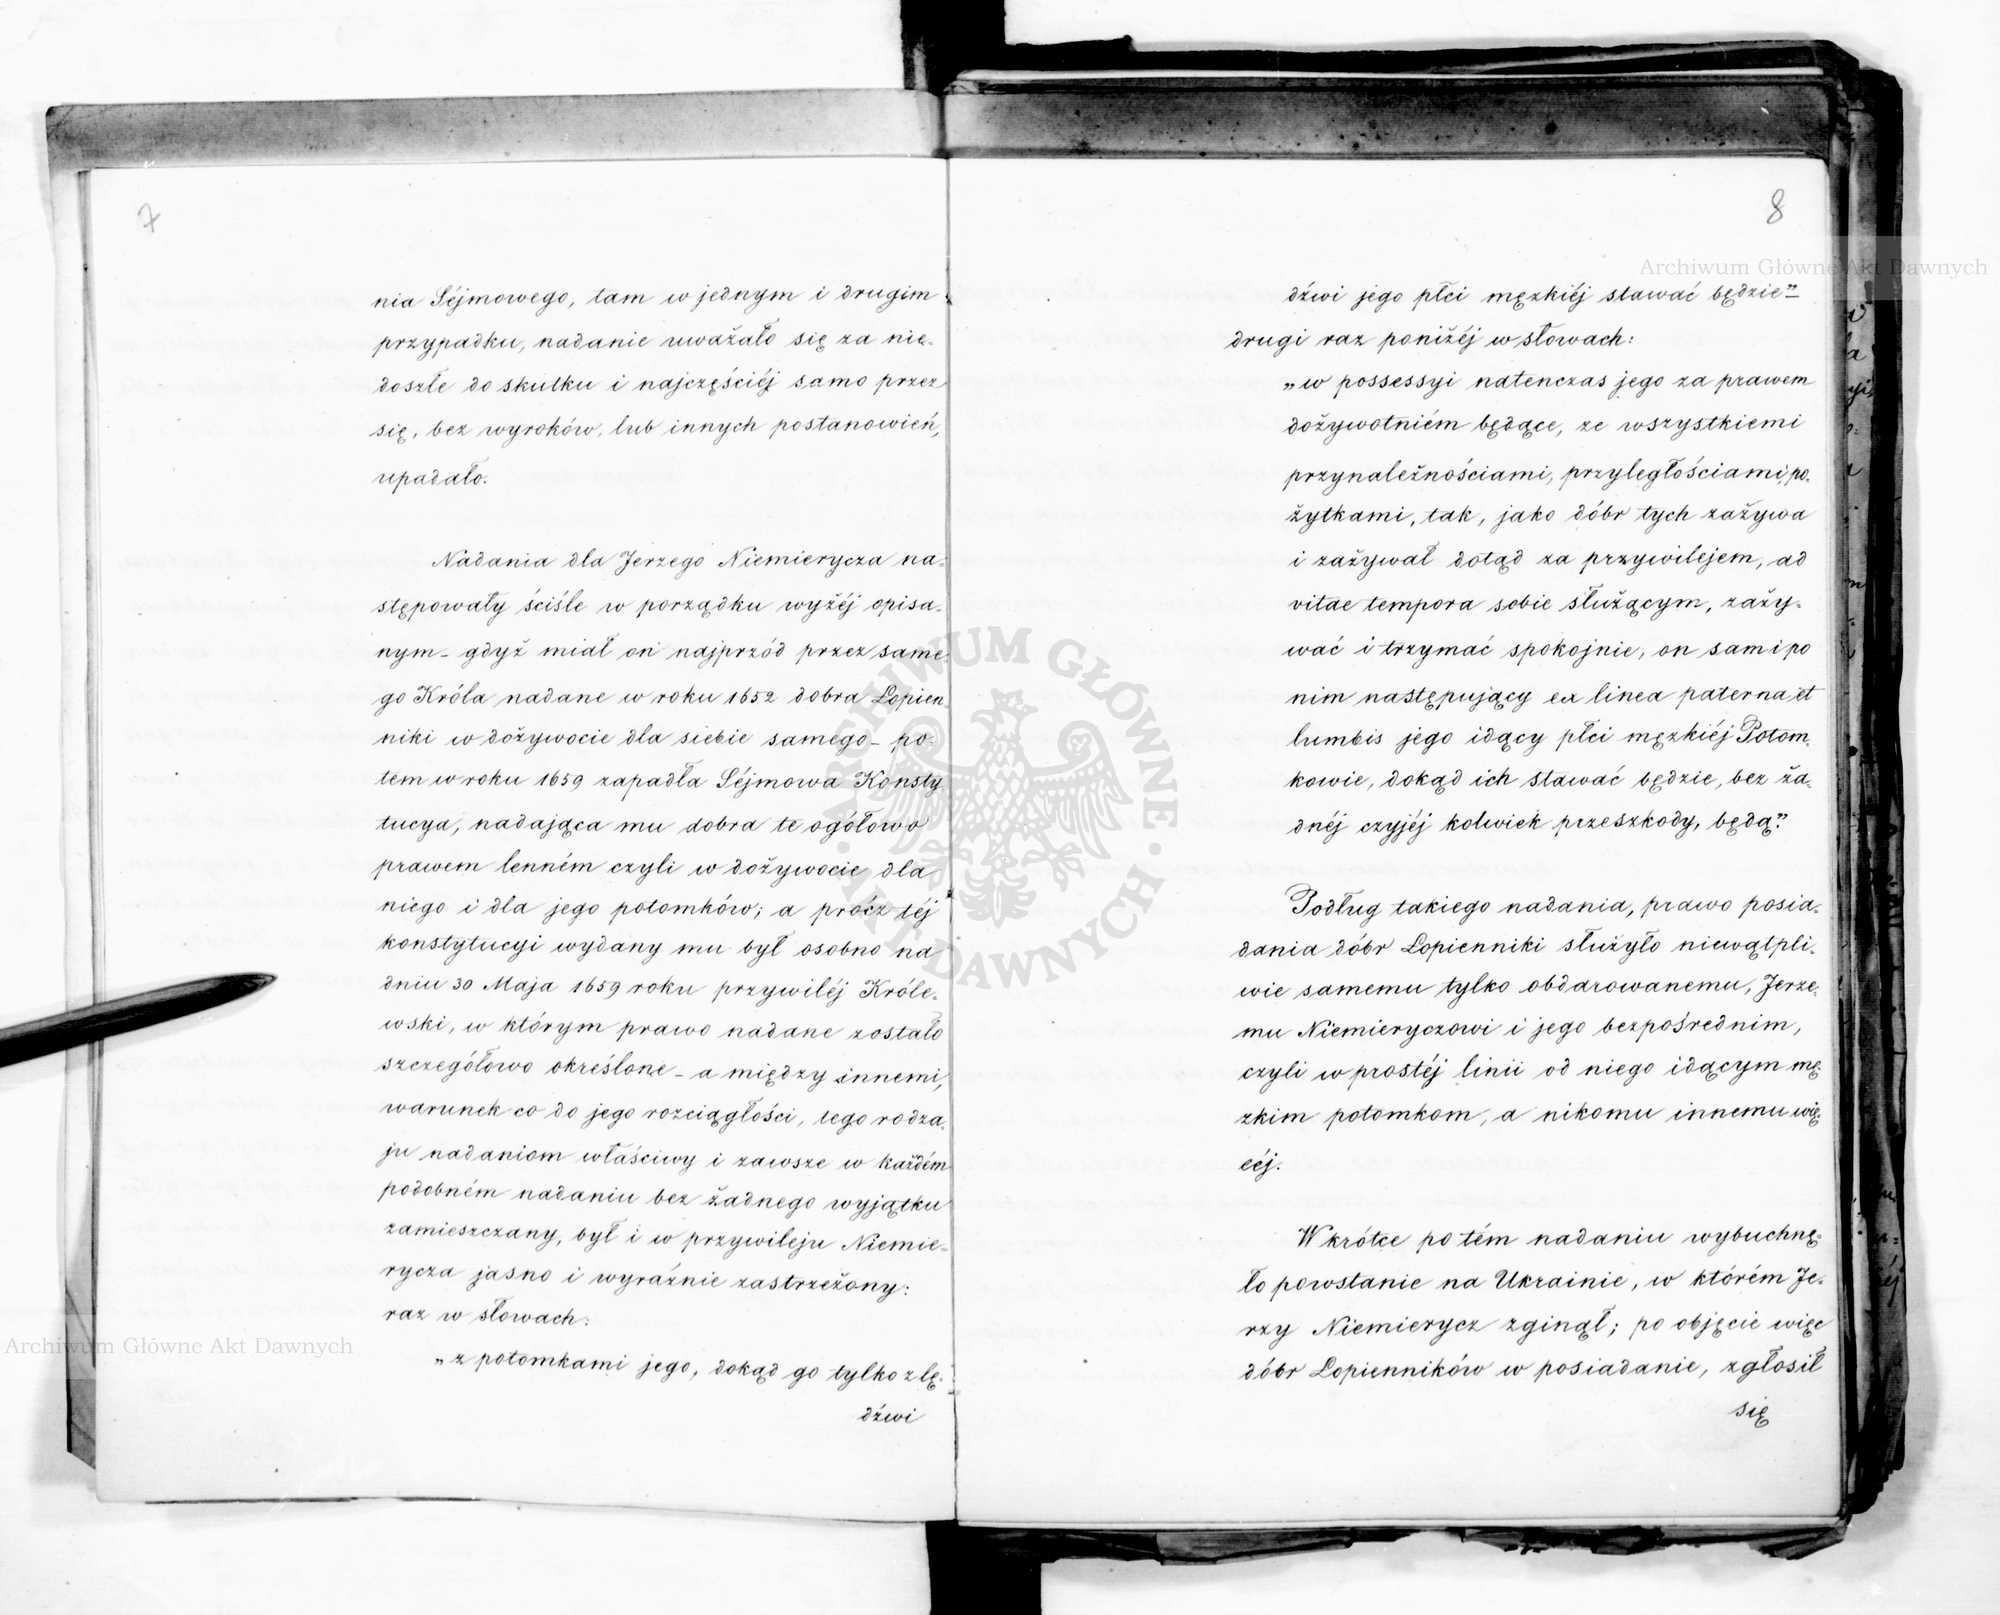 7
nia Séjmowego, tam w jednym i drugim
przypadku, nadanie uważało się za nie-
doszłe do skutku i najczęściéj samo przez
się, bez wyroków, lub innych postanowień,
upadało.
Nadania dla Jerzego Niemierycza na-
stępowały ściśle w porządku wyżéj opisa-
nym – gdyż miał on najprzód przez same-
go Króla nadane w roku 1652 dobra Łopien
niki w dożywocie dla siebie samego – po-
tem w roku 1659 zapadła Séjmowa Konsty
tucya, nadająca mu dobra te ogółowo
prawem lenném czyli w dożywocie dla
niego i dla jego potomków; a prócz téj
konstytucyi wydany mu był osobno na
dniu 30 Maja 1659 roku przywiléj Króle-
wski, w którym prawo nadane zostało
szczegółowo określone – a między innemi,
warunek co do jego rozciągłości, tego rodza-
ju nadaniom właściwy i zawsze w każdém
podobném nadaniu bez żadnego wyjątku
zamieszczany, był i w przywileju Niemie-
rycza jasno i wyraźnie zastrzeżony:
raz w słowach:
„z potomkami jego, dokąd go tylko z lę-
dźwi
8
dźwi jego płci męzkiéj stawać będzie” –
drugi raz poniżéj w słowach:
„w possessyi natenczas jego za prawem
dożywotniém będące, ze wszystkiemi
przynależnościami, przyległościami, po-
żytkami, tak, jako dóbr tych zażywa
i zażywał dotąd za przywilejem, ad
vitae tempora sobie służącym, zaży-
wać i trzymać spokojnie, on sam i po
nim następujący ex linea paterna et
lumbis jego idący płci męzkiéj Potom-
kowie, dokąd ich stawać będzie, bez ża-
dnéj czyjéj kolwiek przeszkody, będą”.
Podług takiego nadania, prawo posia-
dania dóbr Łopienniki służyło niewątpli-
wie samemu tylko obdarowanemu, Jerze-
mu Niemieryczowi i jego bezpośrednim,
czyli w prostéj linii od niego idącym mę-
zkim potomkom, a nikomu innemu wię-
céj.
Wkrótce po tém nadaniu wybuchnę-
ło powstanie na Ukrainie, w którém Je-
rzy Niemierycz zginął; po objęcie więc
dóbr Łopienników w posiadanie, zgłosił
się
Archiwum Główne Akt Dawnych
Archiwum Główne Akt Dawnych
ARCHIWUM GŁÓWNE · AKT DAWNYCH ·